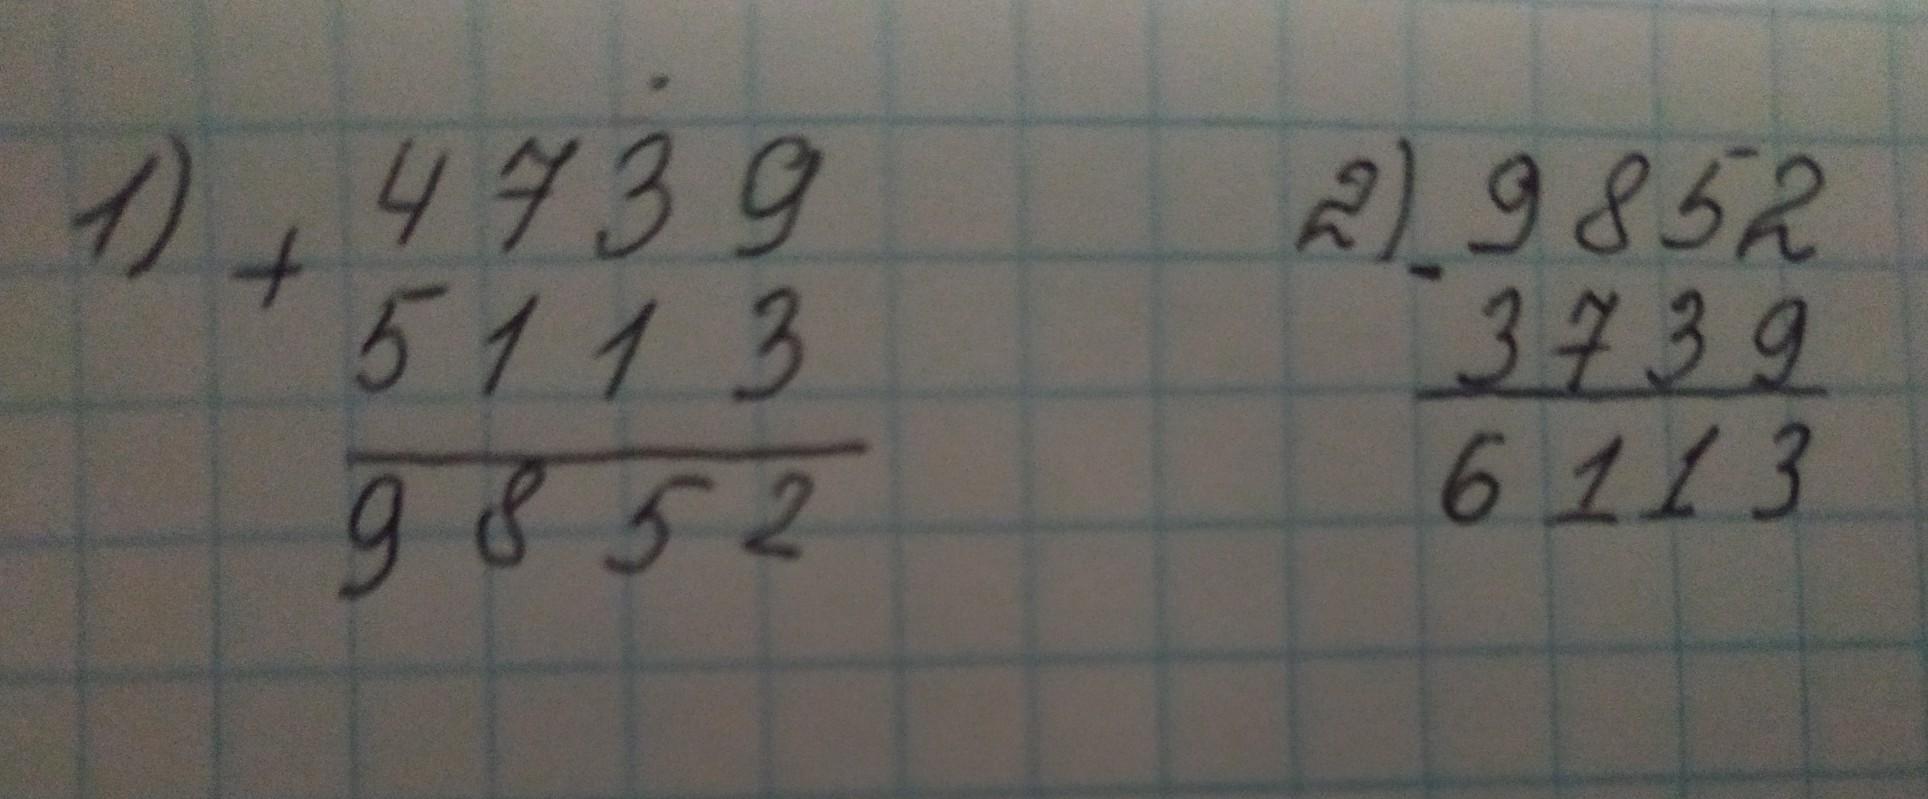 1) + 4739
5113
9852
2) - 9852
3739
6113